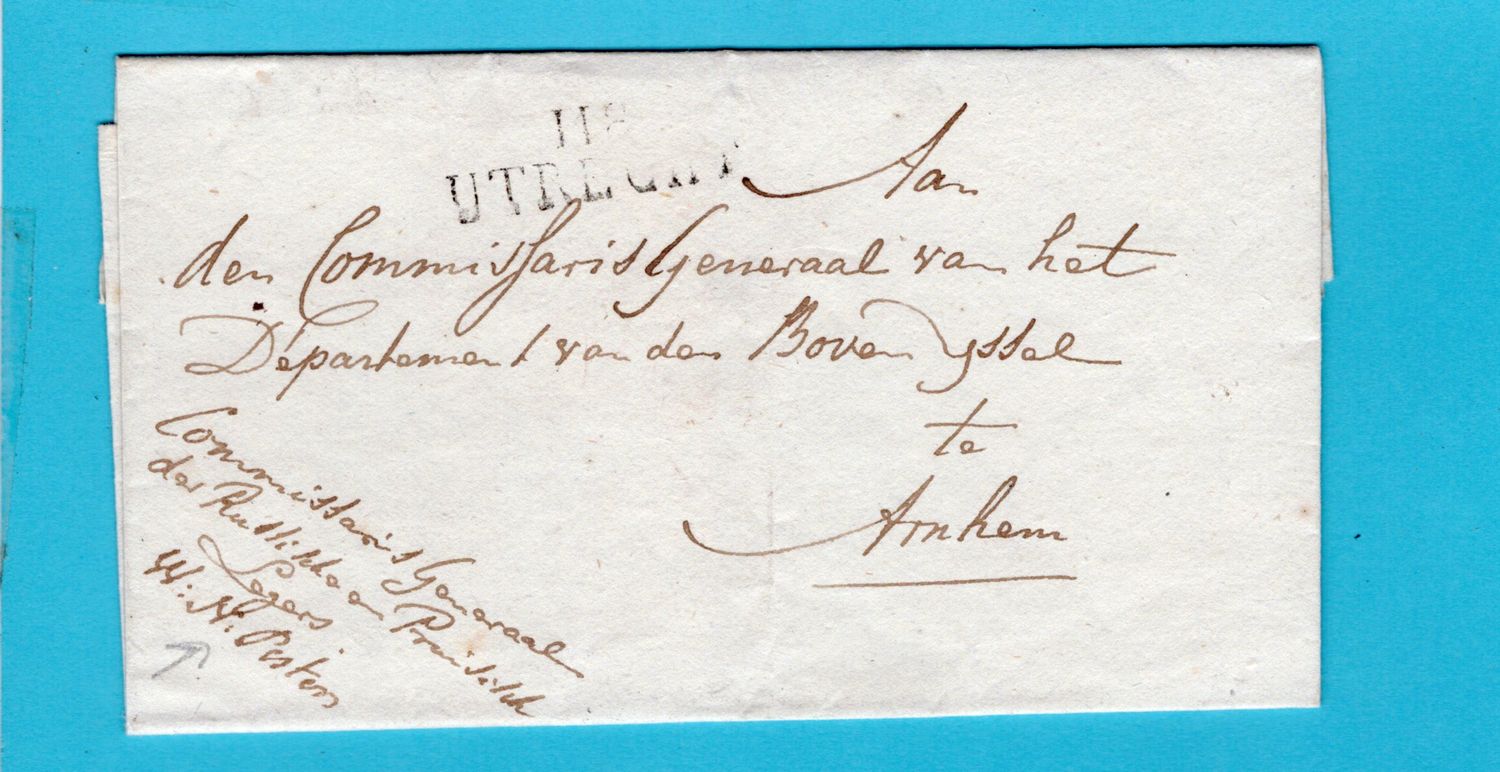 118
UTRECHT
Aan
den Commissaris Generaal van het
Departement van den Boven Yssel
te
Arnhem
Commissaris Generaal
der Russische en Pruisisch
Legers.